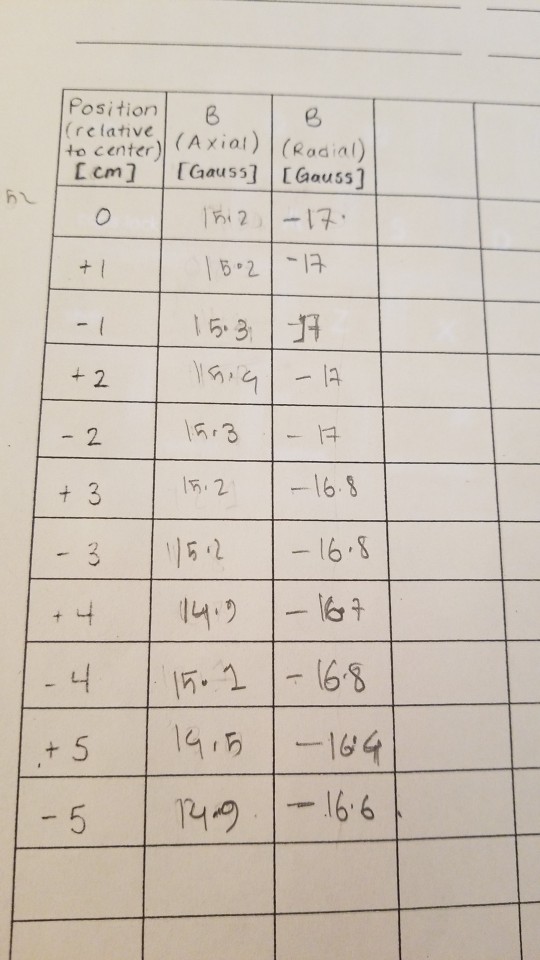 Position
(relative
to center)
[cm]
B
(Axial)
[Gauss]
B
(Radial)
[Gauss]
52
0 15.2 -17.
+1 15.2 -17
-1 15.3 -17
+2 15.4 -17
-2 15.3 -17
+3 15.2 -16.8
-3 15.2 -16.8
+4 14.9 -16.7
-4 15.1 -16.8
+5 14.5 -16.4
-5 14.9 -16.6